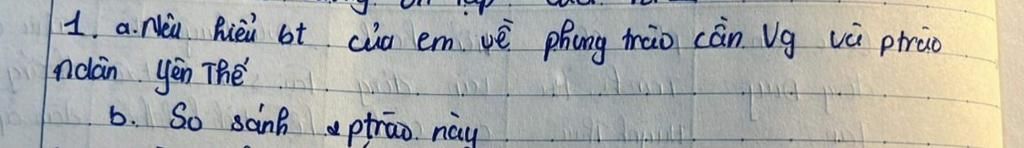 1. a. Nêu hiểu bt của em về phong trào cần Vg và ptrào
ndân Yên Thế
b. So sánh 2 ptrào này